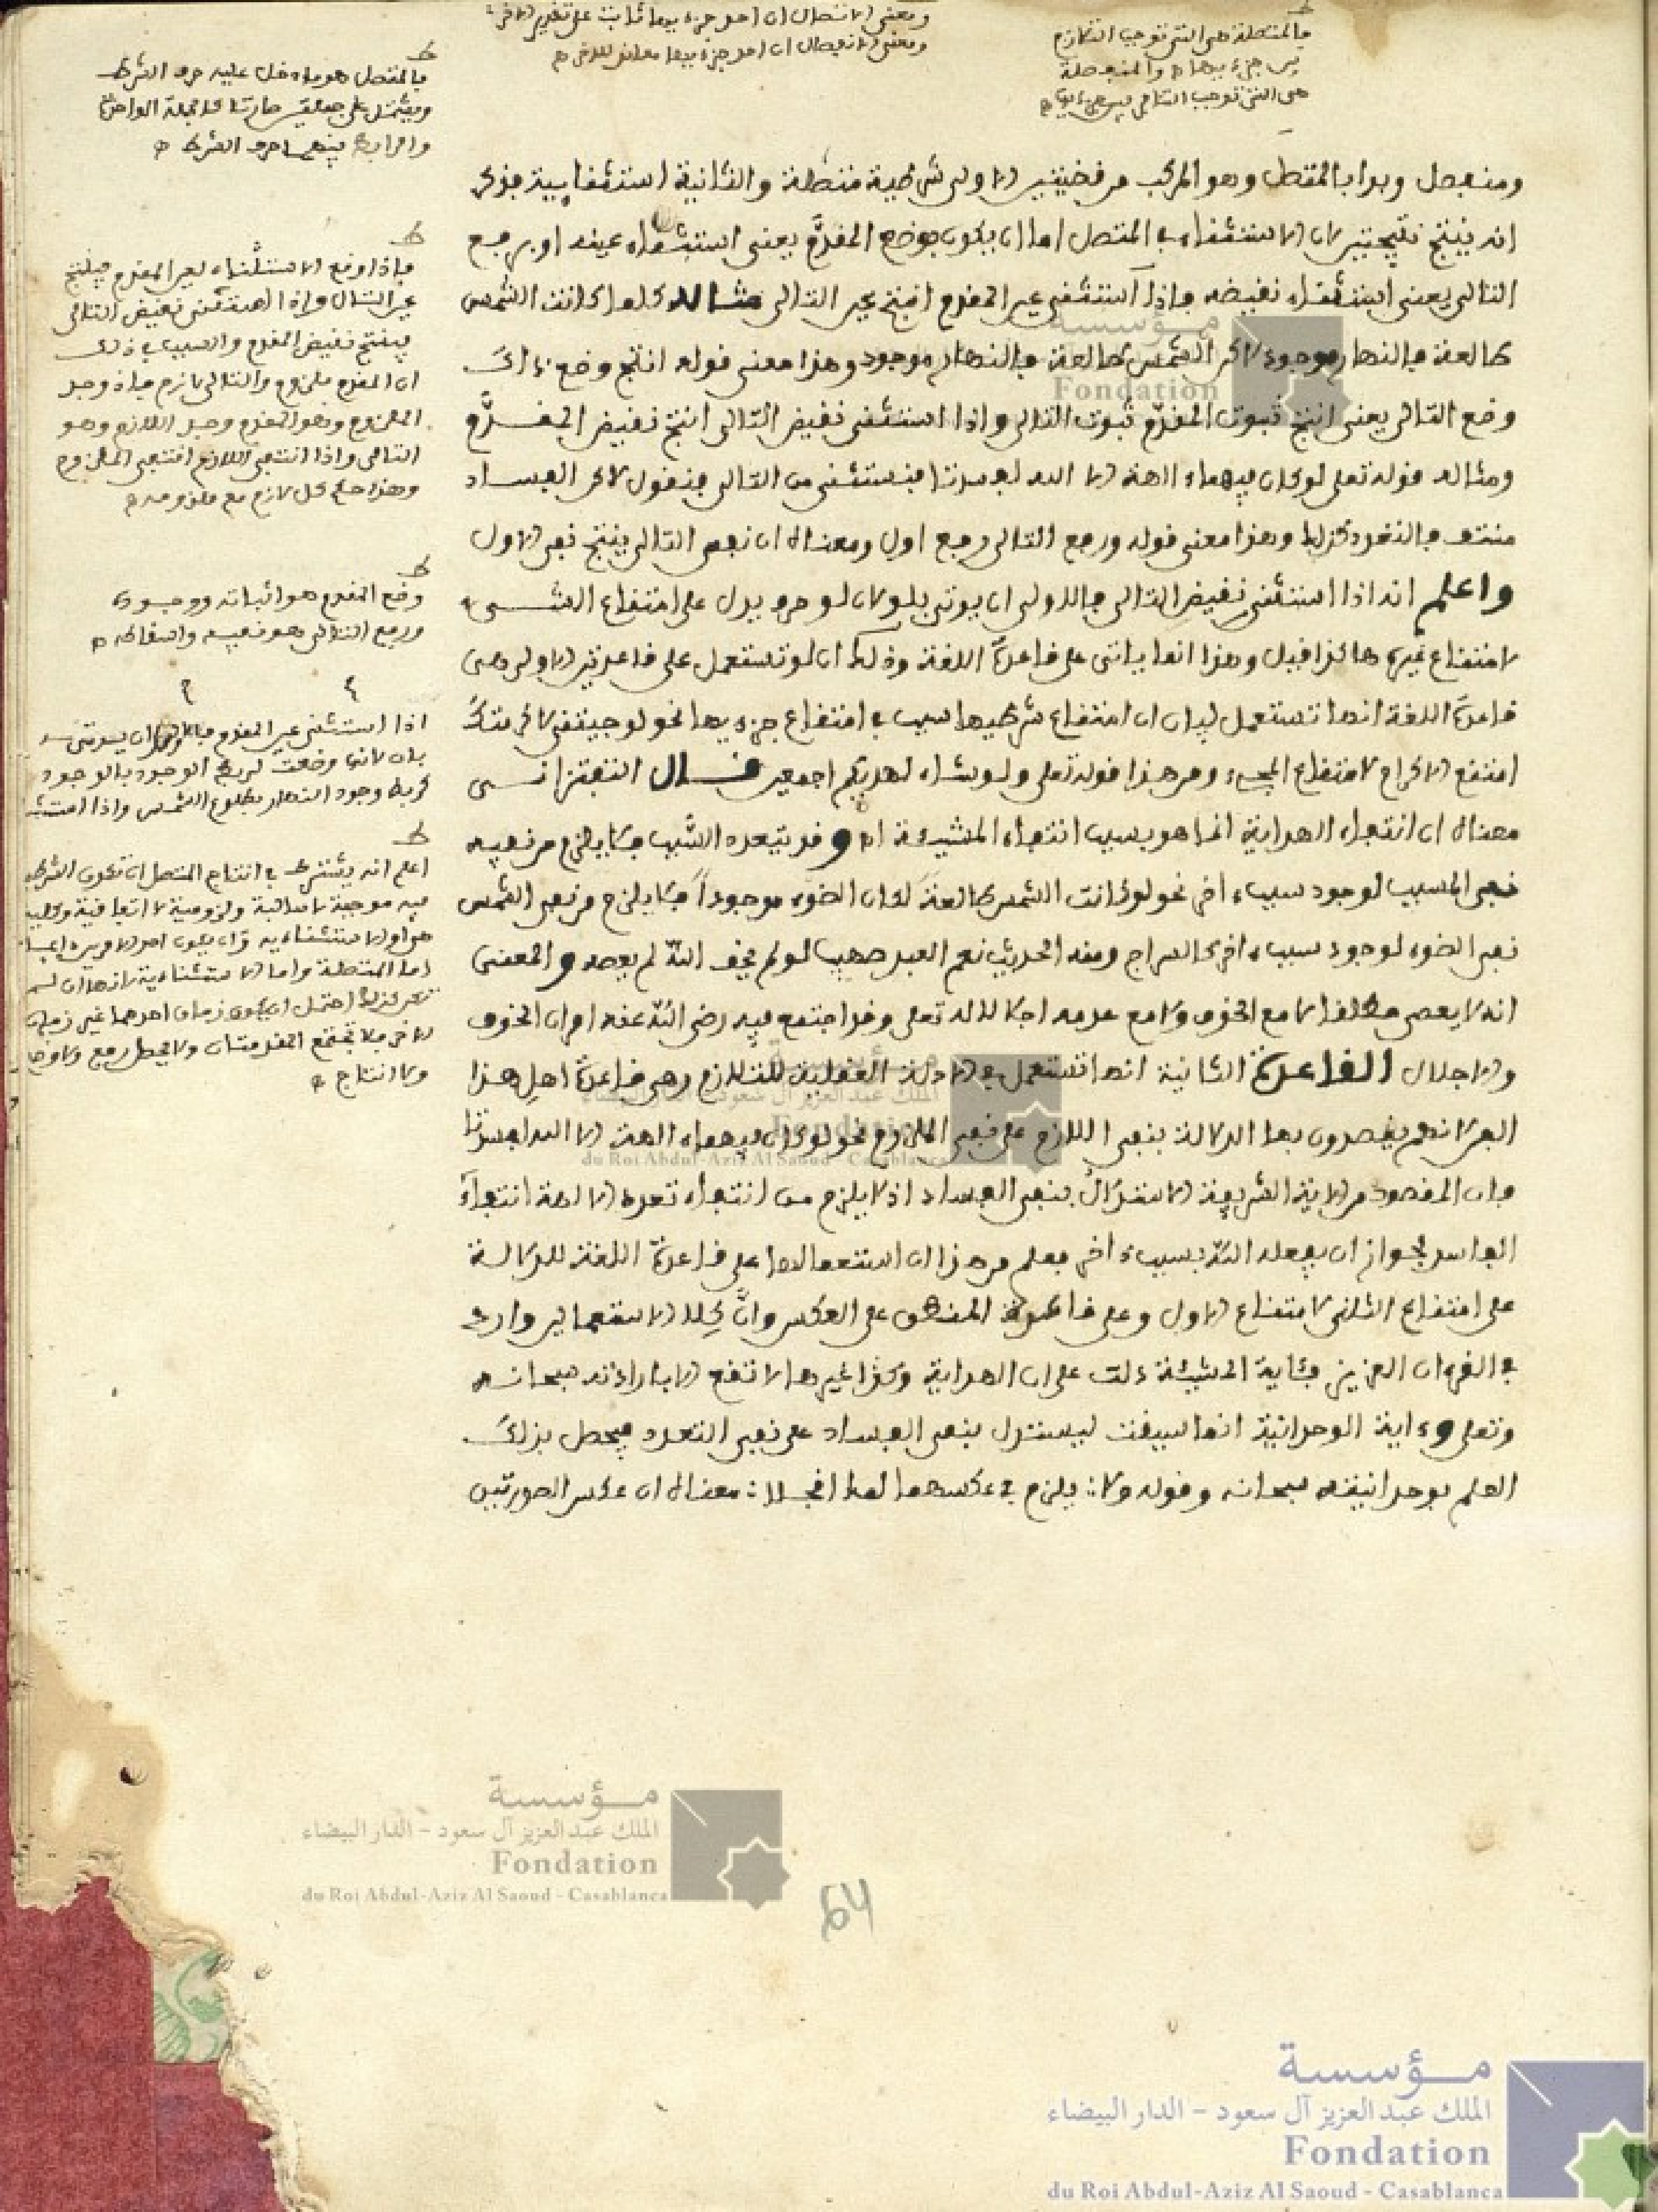 ومعنى الاتصال ان احد جزءيها ثابت على تقدير الاخر
ومعنى الانفصال ان احد جزءيها معاند للاخر
فالمتصلة هي التي توجب التلازم
بين جزءيها والمنفصلة
هي التي توجب التنافي بين جزءيها
فالمتصل هو ما دخل عليه حرف الشرط
ويشتمل على جملتين صارتا كالجملة الواحدة
والرابط بينهما حرف الشرط
ومنفصل وبدا بالمتصل وهو المركب من قضيتين الاولى شرطية متصلة والثانية استثنائية فذكر
انه ينتج نتيجتين لان الاستثناء في المتصل اما ان يكون بوضع المقدم يعني استثناء عينه او برفع
التالي يعني استثناء نقيضه فاذا استثني عين المقدم انتج عين التالي مثاله كلما كانت الشمس
طالعة فالنهار موجود لاكن الشمس طالعة فالنهار موجود وهذا معنى قوله انتج وضع ذاك
وضع التالي يعني انتج ثبوت المقدم ثبوت التالي واذا استثني نقيض التالي انتج نقيض المقدم
ومثاله قوله تعلى لو كان فيهما ءالهة الا الله لفسدتا فنستثني من التالي فنقول لاكن الفساد
منتف فالتعدد كذلك وهذا معنى قوله ورفع التالي رفع اول ومعناه ان نفي التالي ينتج نفي الاول
واعلم انه اذا استثني نقيض التالي فالاولى ان يوتى بلو لان لو حرف يدل على امتناع الشيء
لامتناع غيره هاكذا قيل وهذا انما ياتي على قاعدة اللغة وذلك ان لو تستعمل على قاعدتين الاولى هي
قاعدة اللغة انها تستعمل لبيان ان امتناع شرطها سبب في امتناع جزءيها نحو لو جيتني لاكرمتك
امتنع الاكرام لامتناع المجيء ومن هذا قوله تعلى ولو شاء لهديكم اجمعين قال التفتزاني
معناه ان انتفاء الهداية انما هو بسبب انتفاء المشيئة اه وقد يتعدد السبب فلا يلزم من نفيه
نفي المسبب لوجود سبب ءاخر نحو لو كانت الشمس طالعة لكان الضوء موجودا فلا يلزم من نفي الشمس
نفي الضوء لوجود سبب ءاخر كالسراج ومنه الحديث نعم العبد صهيب لو لم يخف الله لم يعصه والمعنى
انه لا يعصي مطلقا لا مع الخوف ولا مع عدمه اجلالا له تعلى وقد اجتمع فيه رضي الله عنه امران الخوف
والاجلال القاعدة الثانية انها تستعمل في الادلة العقلية للتلازم وهي قاعدة اهل هذا
الفن لانهم يقصدون بها الدلالة بنفي اللازم على نفي الملزوم نحو لو كان فيهما ءالهة الا الله لفسدتا
فان المقصود من الاية الشريفة الاستدلال بنفي الفساد اذ لا يلزم من انتفاء تعدد الالهة انتفاء
الفاسد لجواز ان يفعله الله بسبب ءاخر فعلم من هذا ان استعمالها على قاعدة اللغة للدلالة
على امتناع الثاني لامتناع الاول وعلى قاعدة المنطق على العكس وان كلا الاستعمالين وارد
في القرءان العزيز فئاية المشيئة دلت على ان الهداية وكذا غيرها لا تقع الا بارادته سبحانه
وتعلى وءاية الوحدانية انما سيقت ليستدل بنفي الفساد على نفي التعدد فيحصل بذلك
العلم بوحدانيته سبحانه وقوله ولا: يلزم في عكسهما لما انجلا: معناه ان عكس الصورتين
فاذا وقع الاستثناء لعين المقدم فينتج
عين التالي واذا استثني نقيض التالي
فينتج نقيض المقدم والسبب في ذلك
ان المقدم ملزوم والتالي لازم فاذا وجد
الملزوم وهو المقدم وجد اللازم وهو
التالي واذا انتفى اللازم انتفى الملزوم
وهذا حكم كل لازم مع ملزومه
وضع المقدم هو اثباته ووجوده
ورفع التالي هو نفيه واسقاطه
اذا استثني عين المقدم فالاولى ان يوتى
بان لانها وضعت لربط الوجود بالوجود
كربط وجود النهار بطلوع الشمس واذا استثني
اعلم انه يشترط في انتاج المتصل ان تكون الشرطية
فيه موجبة لا سالبة ولزومية لا اتفاقية وكلية
هي او الاستثنائية وان يكون احد الامرين
اما المتصلة واما الاستثنائية لانها ان لم
تكن كذلك احتمل ان يكون زمان احدهما غير زمان
الاخر فلا تجتمع المقدمتان ولا يحصل رفع ولا وضع
ولا انتاج
64
مؤسسة
الملك عبد العزيز آل سعود - الدار البيضاء
Fondation
du Roi Abdul-Aziz Al Saoud - Casablanca
مؤسسة
الملك عبد العزيز آل سعود - الدار البيضاء
Fondation
du Roi Abdul-Aziz Al Saoud - Casablanca